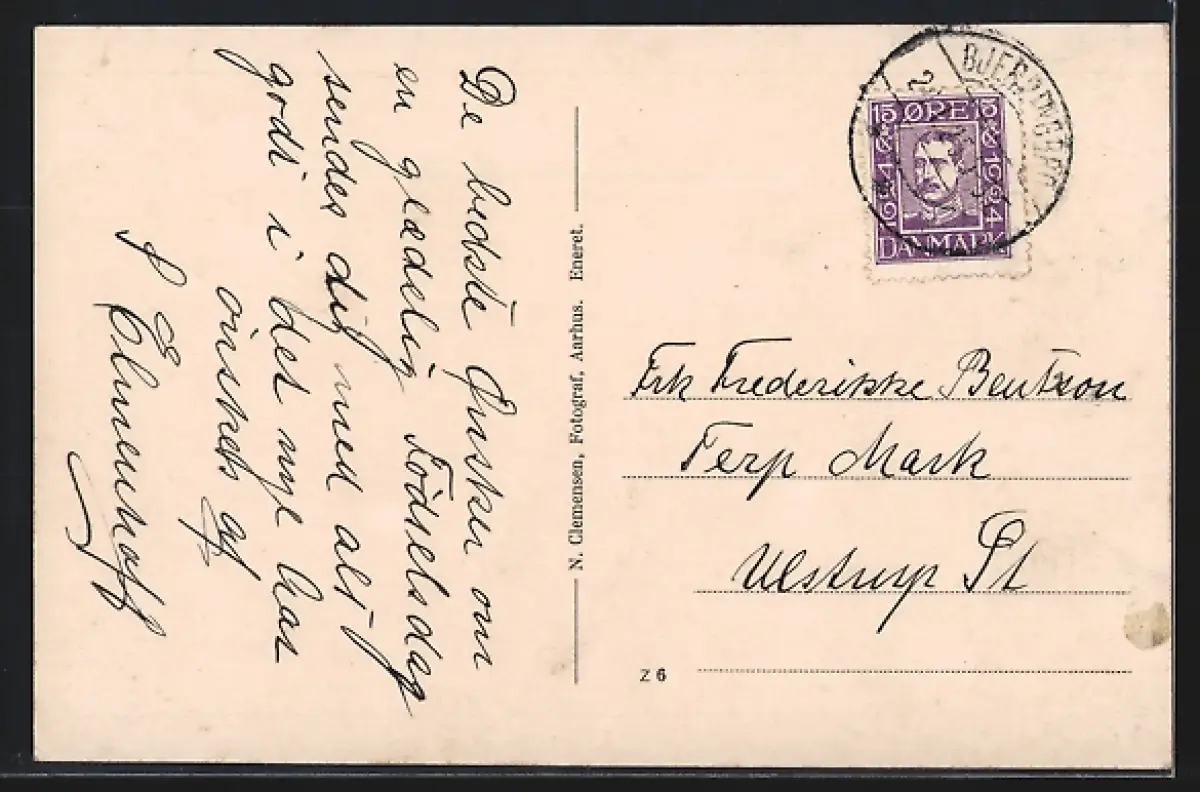 De bedste Ønsker om
en glædelig Fødselsdag
sendes dig med alt
godt i det nye Aar
ønskes af
Elmenhoff
N. Clemensen, Fotograf, Aarhus. Eneret.
15 ØRE 15
1624 1924
DANMARK
BJERRINGBRO
Frk Frederikke Bentzon
Terp Mark
Ulstrup St
Z 6